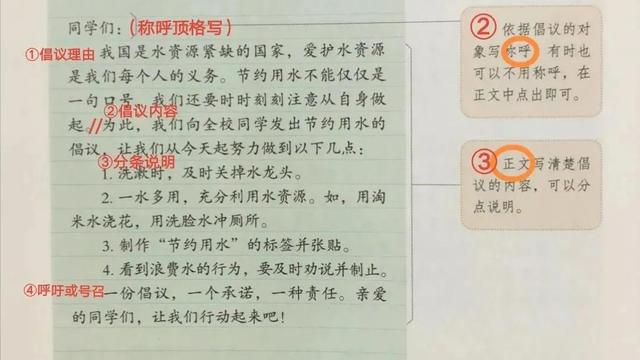 同学们：(称呼顶格写)
①倡议理由 我国是水资源紧缺的国家，爱护水资源
是我们每个人的义务。节约用水不能仅仅是
一句口号，我们还要时时刻刻注意从自身做
②倡议内容
起。//为此，我们向全校同学发出节约用水的
倡议，让我们从今天起努力做到以下几点：
③分条说明
1. 洗漱时，及时关掉水龙头。
2. 一水多用，充分利用水资源。如，用淘
米水浇花，用洗脸水冲厕所。
3. 制作“节约用水”的标签并张贴。
4. 看到浪费水的行为，要及时劝说并制止。
④呼吁或号召
一份倡议，一个承诺，一种责任。亲爱
的同学们，让我们行动起来吧！
② 依据倡议的对
象写称呼，有时也
可以不用称呼，在
正文中点出即可。
③ 正文写清楚倡
议的内容，可以分
点说明。